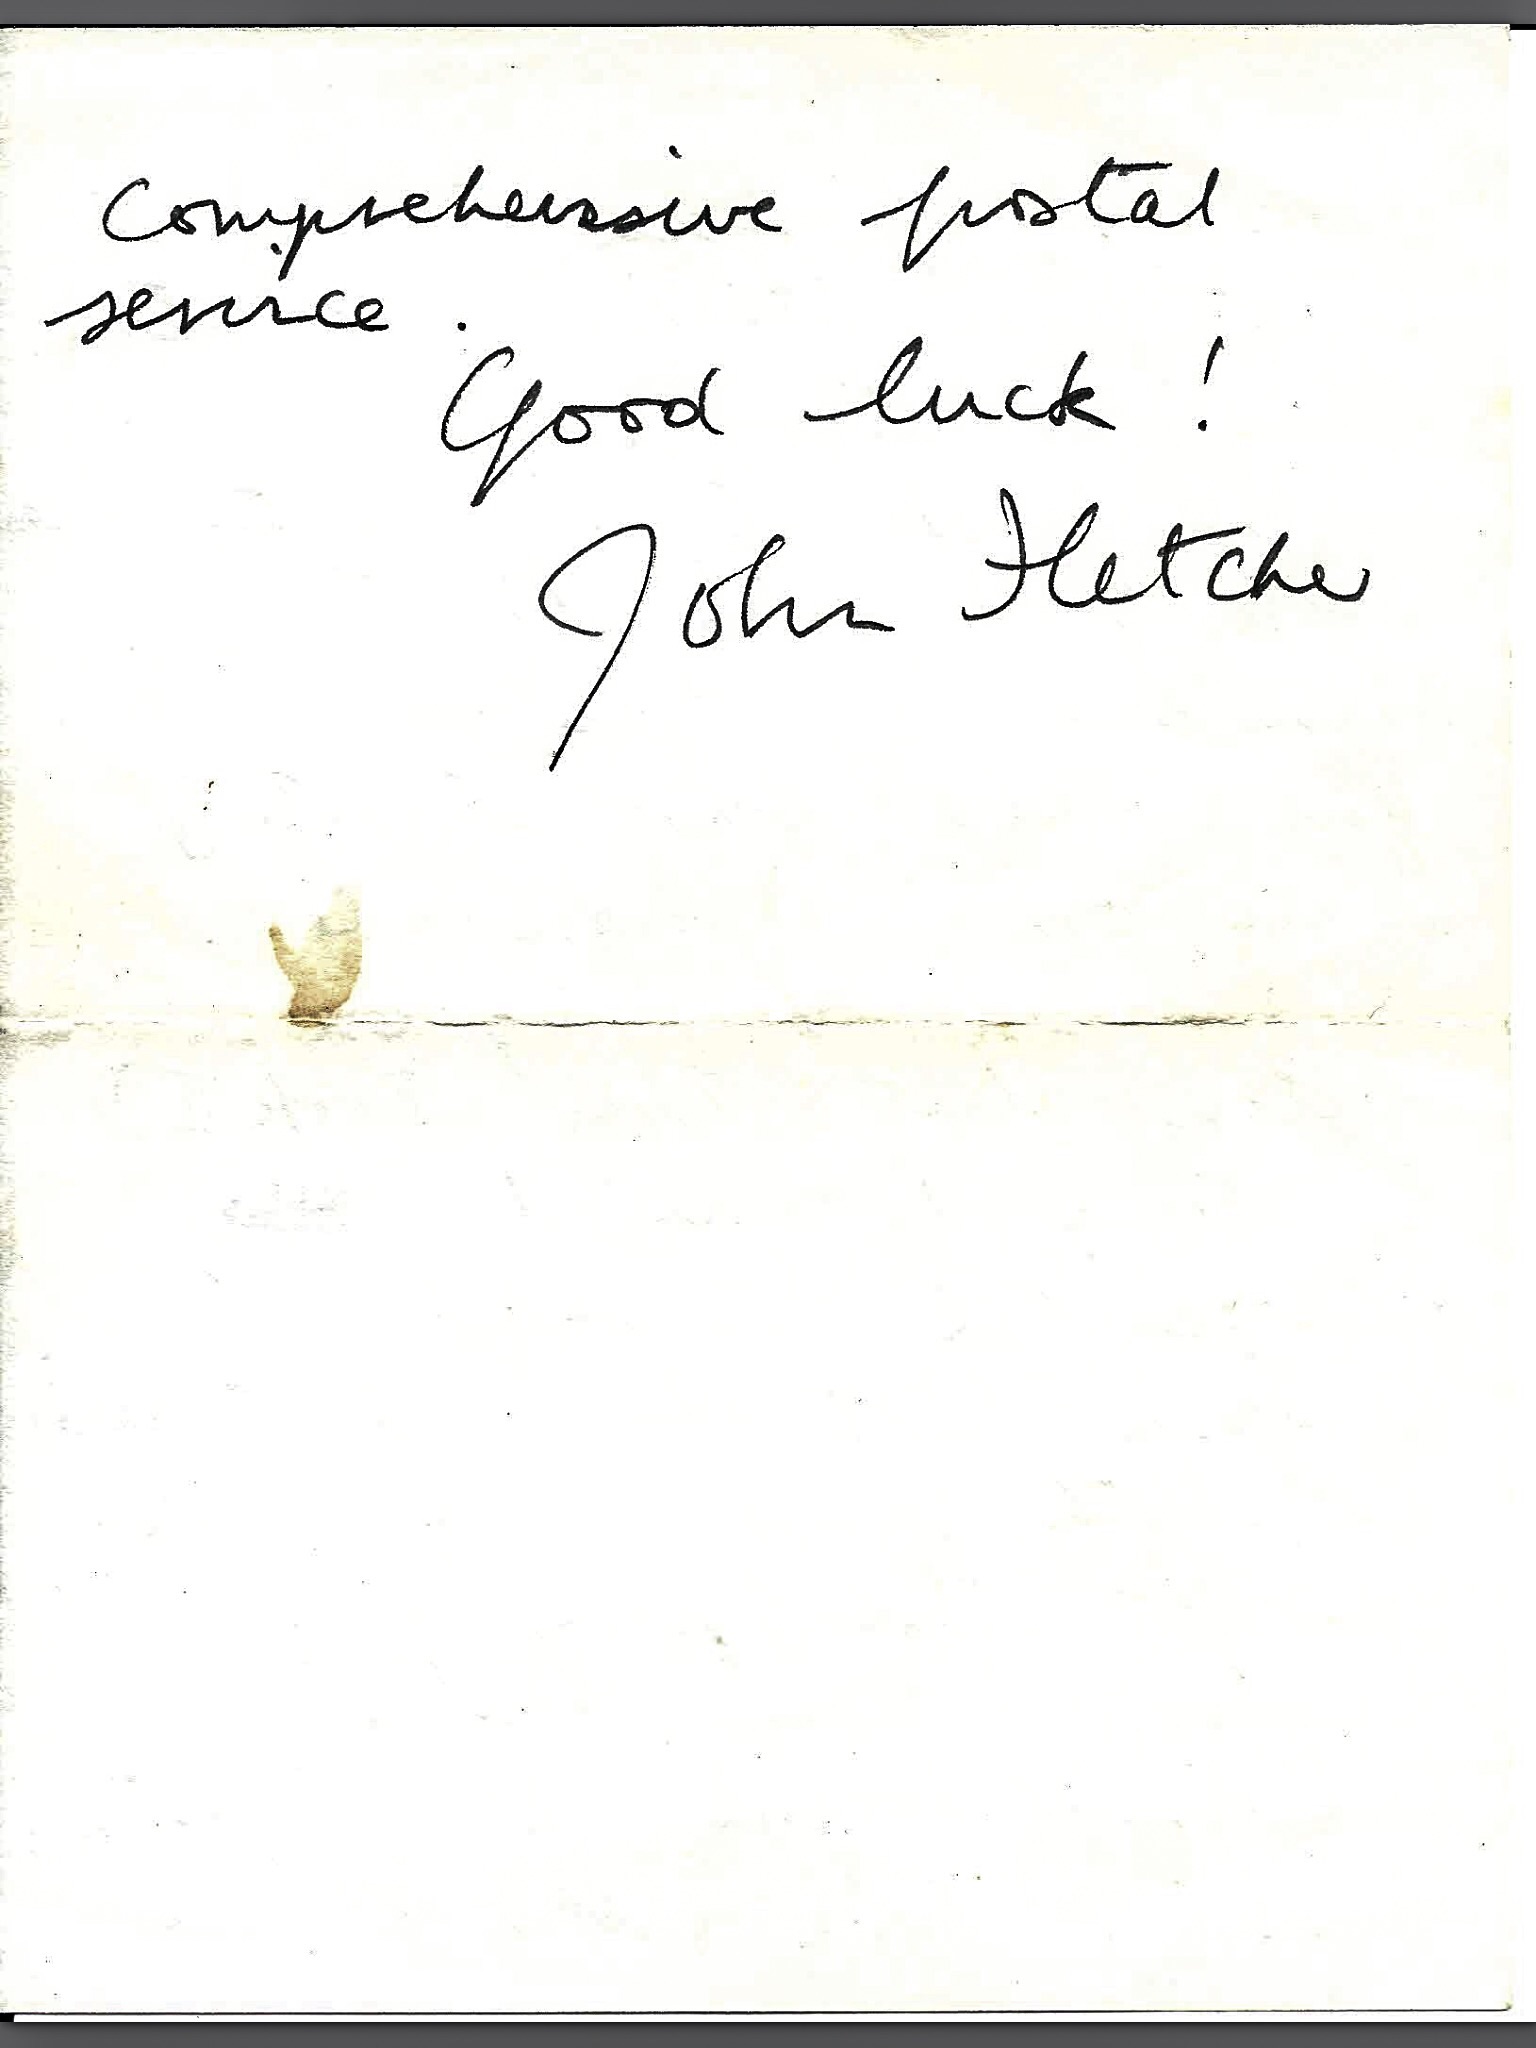 comprehensive postal
service.
Good luck!
John Fletcher